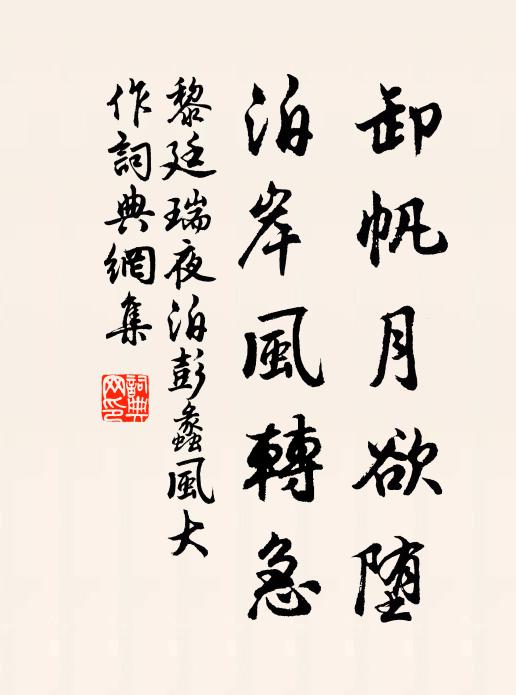 卸帆月欲堕
泊岸風轉急
黎廷瑞夜泊彭蠡風大
作詞典網集
詞典
网印